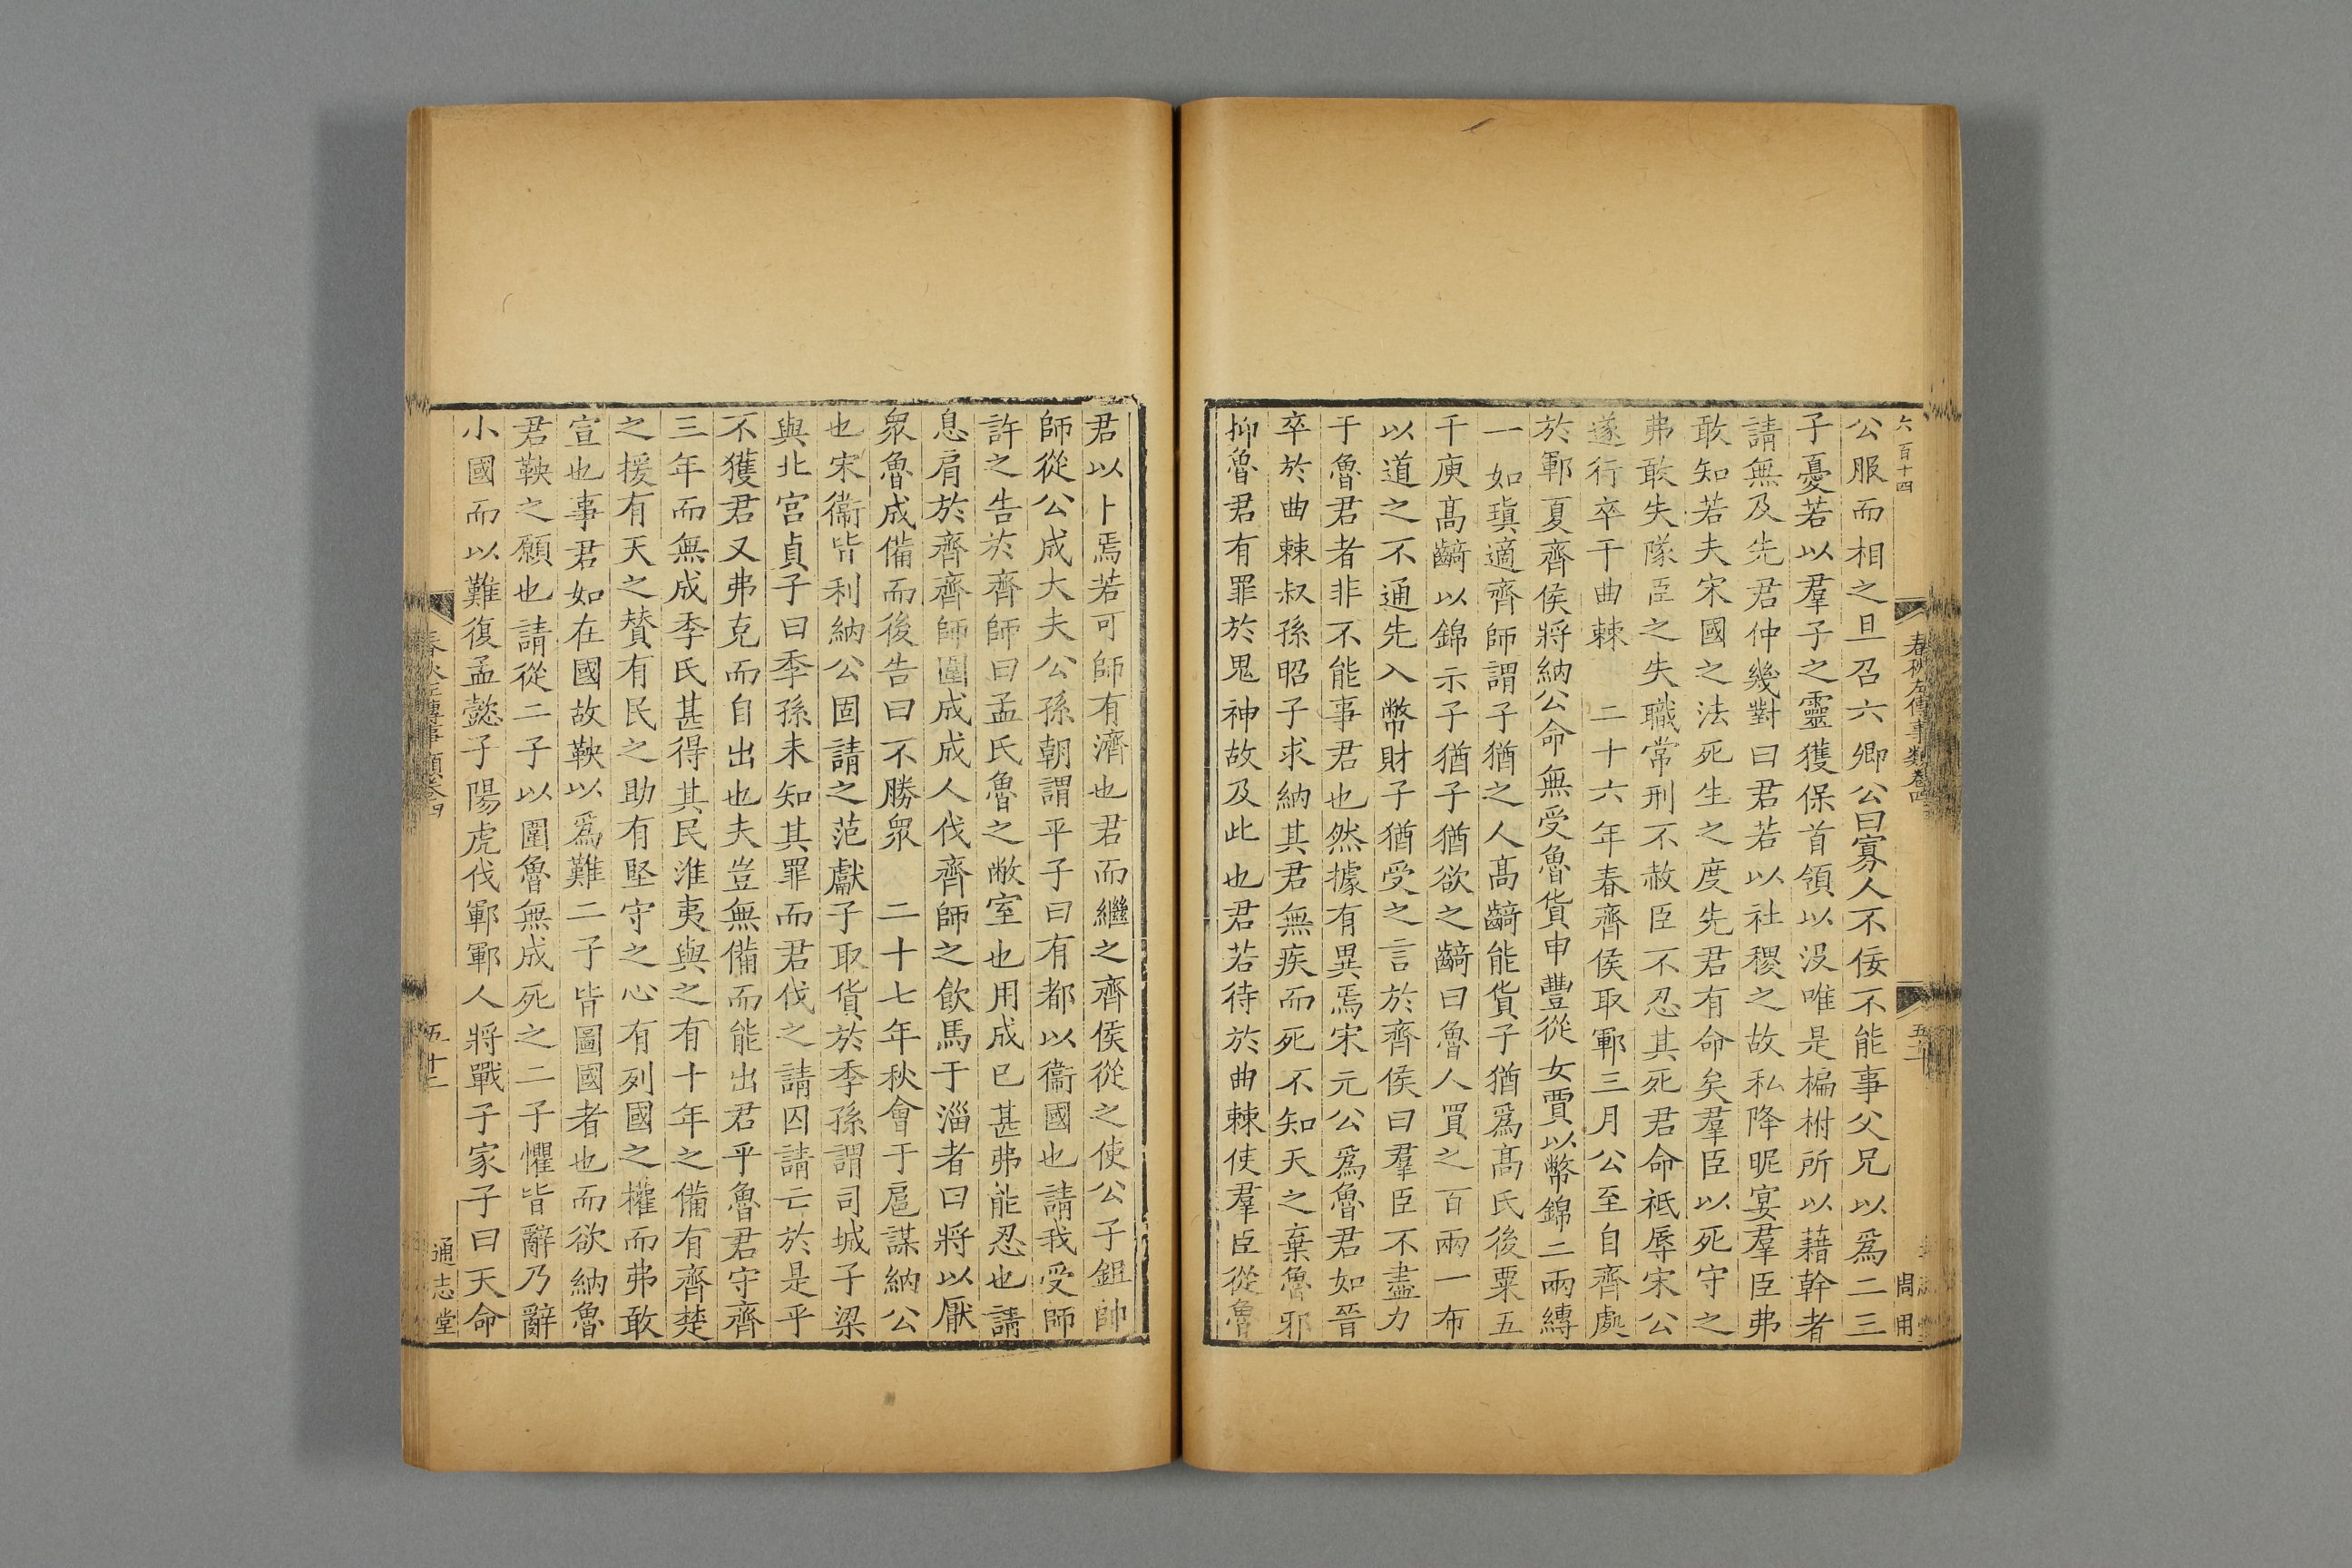 六百十四
春秋左傳事類卷四
五十
周用
公服而相之旦召六卿公曰寡人不佞不能事父兄以爲二三
子憂若以羣子之靈獲保首領以没唯是楄柎所以藉幹者
請無及先君仲幾對曰君若以社稷之故私降昵宴羣臣弗
敢知若夫宋國之法死生之度先君有命矣羣臣以死守之
弗敢失隊臣之失職常刑不赦臣不忍其死君命祗辱宋公
遂行卒于曲棘 二十六年春齊侯取鄆三月公至自齊處
於鄆夏齊侯將納公命無受魯貨申豐從女賈以幣錦二兩縳
一如瑱適齊師謂子猶之人髙齮能貨子猶爲髙氏後粟五
千庾髙齮以錦示子猶子猶欲之齮曰魯人買之百兩一布
以道之不通先入幣財子猶受之言於齊侯曰羣臣不盡力
于魯君者非不能事君也然據有異焉宋元公爲魯君如晉
卒於曲棘叔孫昭子求納其君無疾而死不知天之棄魯邪
抑魯君有罪於鬼神故及此也君若待於曲棘使羣臣從魯
君以卜焉若可師有濟也君而繼之齊侯從之使公子鉏帥
師從公成大夫公孫朝謂平子曰有都以衞國也請我受師
許之告於齊師曰孟氏魯之敝室也用成已甚弗能忍也請
息肩於齊齊師圍成成人伐齊師之飮馬于淄者曰將以厭
衆魯成備而後告曰不勝衆 二十七年秋會于扈謀納公
也宋衞皆利納公固請之范獻子取貨於季孫謂司城子梁
與北宮貞子曰季孫未知其罪而君伐之請囚請亡於是乎
不獲君又弗克而自出也夫豈無備而能出君乎魯君守齊
三年而無成季氏甚得其民淮夷與之有十年之備有齊楚
之援有天之賛有民之助有堅守之心有列國之權而弗敢
宣也事君如在國故鞅以爲難二子皆圖國者也而欲納魯
君鞅之願也請從二子以圍魯無成死之二子懼皆辭乃辭
小國而以難復孟懿子陽虎伐鄆鄆人將戰子家子曰天命
通志堂